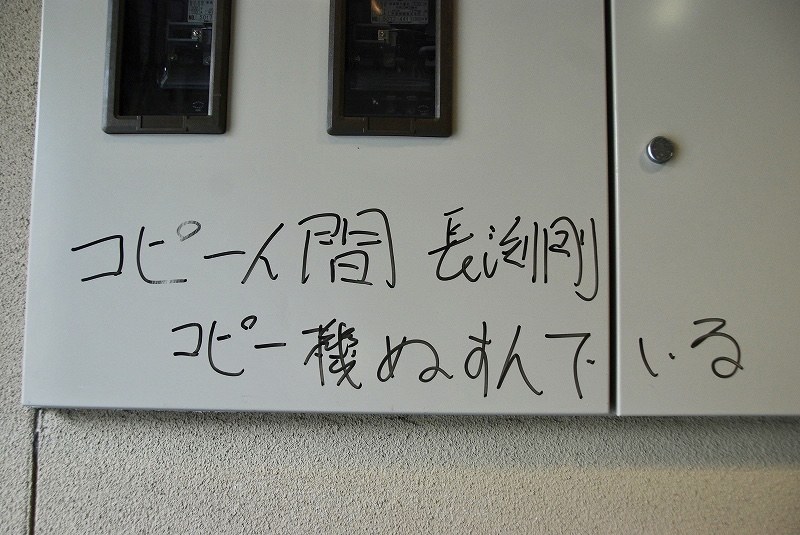 コピー人間 長渕剛
コピー機ぬすんでいる